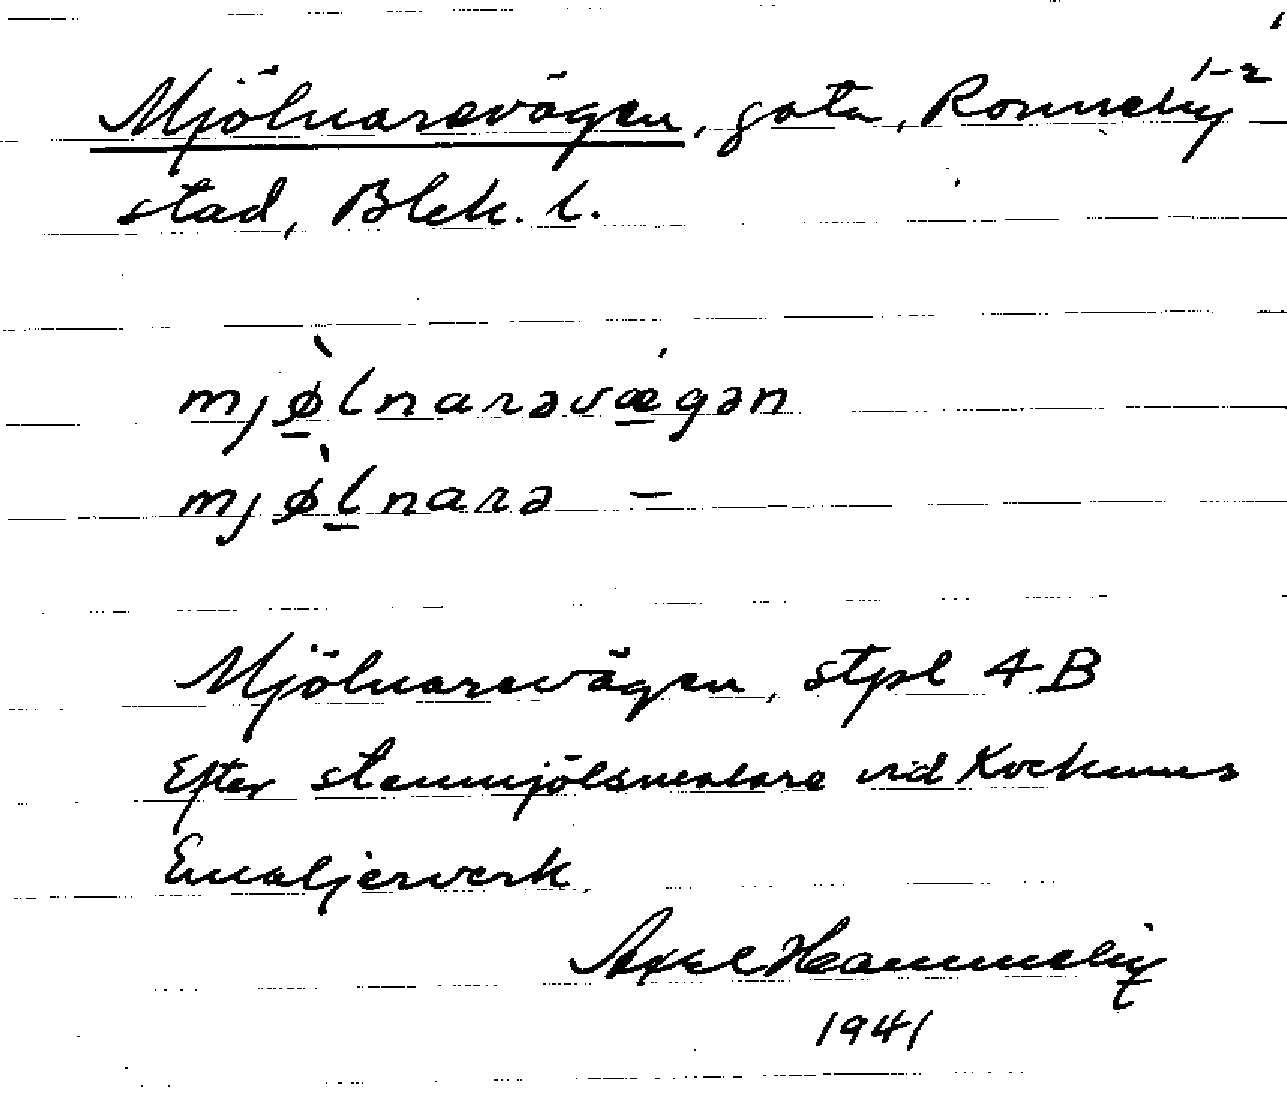 1-2
Mjölnarevägen, gata, Ronneby
stad, Blek. l.
mjø̱̀lnarəvǽ̱gən
mjø̀ḻnarə —
Mjölnarevägen, stpl 4 B
Efter stenmjölsmalare vid Kockums
Emaljerverk
Axel Hammelin
1941